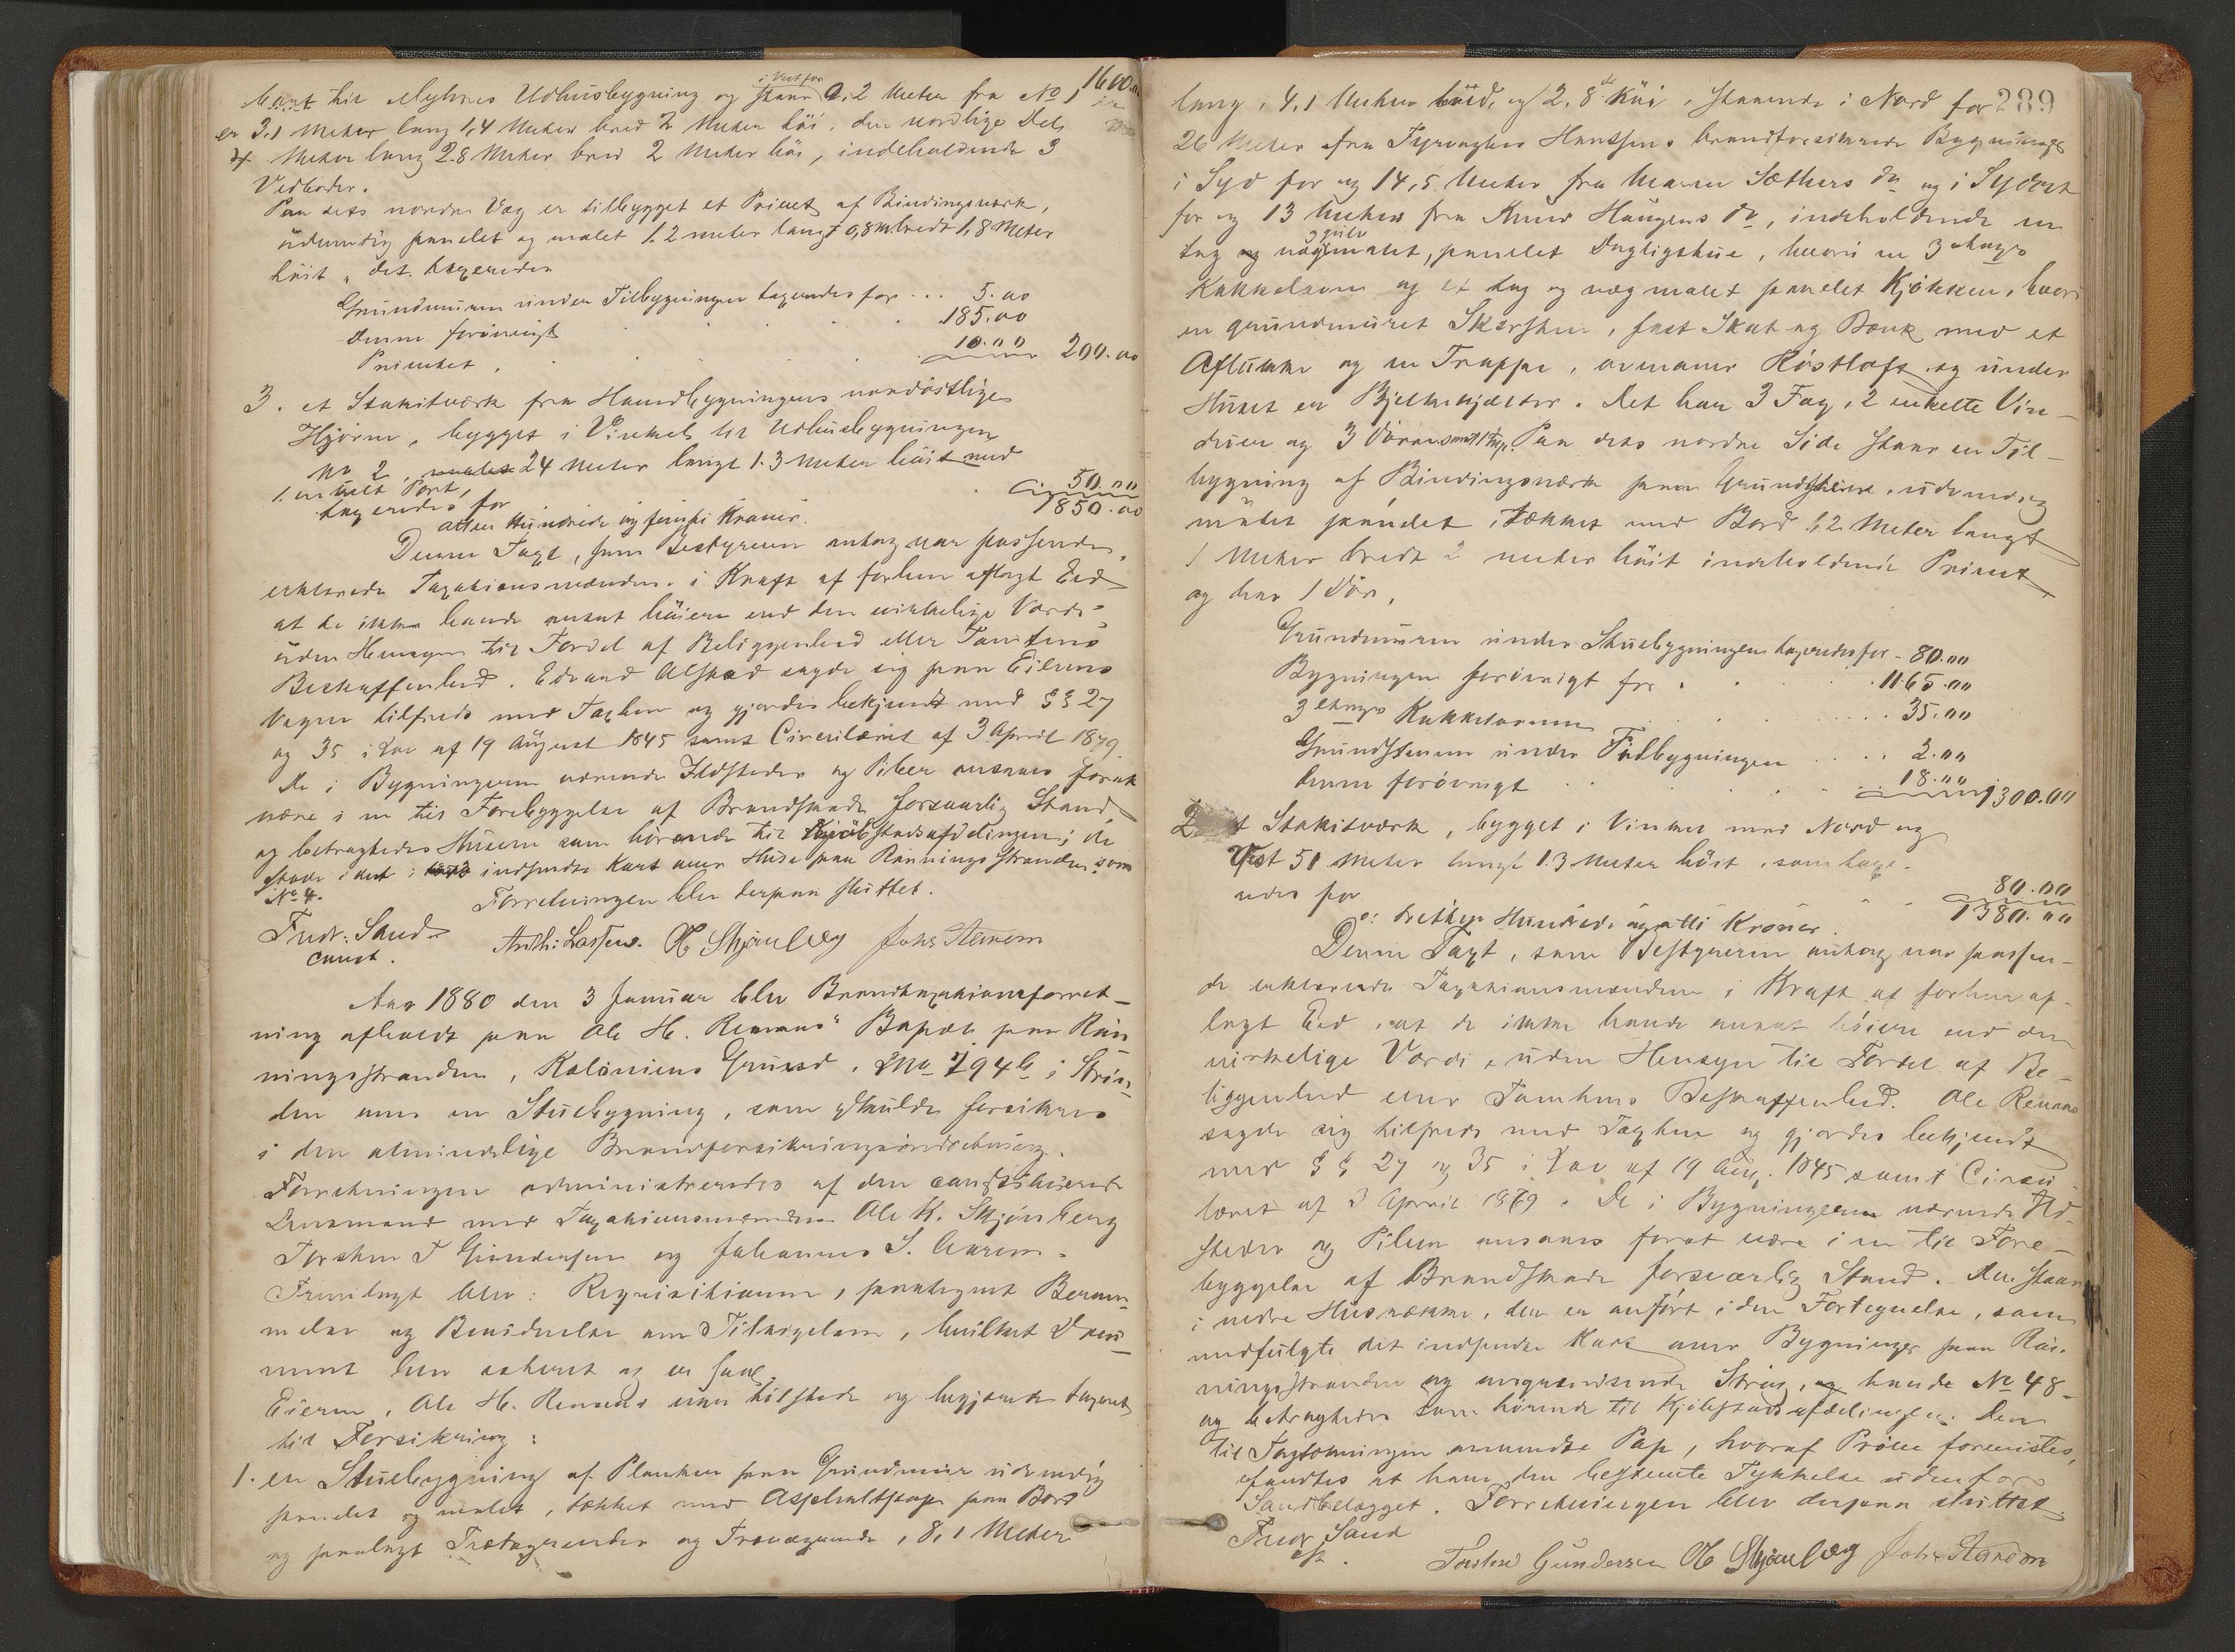 til Mykens Udhusbygning og staar i Vest for 0.2 Meter fra No 1 1600.00
er 3,1 Meter lang 1,4 Meter bred 2 Meter høi, den nordlige Del
4 Meter lang 2.8 Meter bred 2 Meter høi, indeholdende 3
Vedboder.
Paa dets nordre Væg er tilbygget et Privet af Bindingsværk,
udvendig panelet og malet 1.2 meter langt 0,8 m bredt 1,8 Meter
høit, det taxeredes
Grundmuren under Tilbygningen taxeredes for ... 5.00
denne forøvrigt 185.00
Privetet 10.00 200.00
3. et Stakitværk fra Hovedbygningens nordøstlige
Hjørne, bygget i Vinkel til Udhusbygningen
No 2, malet 24 Meter langt 1.3 Meter høit med
1 malt Port,
taxeredes for 50.00
1850.00
atten Hundrede og femti Kroner.
Denne Taxt, som Bestyreren antog var passende,
erklærede Taxationsmændene i Kraft af forhen aflagt Eed
at de ikke havde ansat høiere end den virkelige Værdi,
uden Hensyn til Fordel af Beliggenhed eller Tomtens
Beskaffenhed. Edvard Alstad sagde sig paa Eierens
Vegne tilfreds med Taxten og gjordes bekjendt med §§ 27
og 35 i Lov af 19 August 1845 samt Circulæret af 3 April 1879.
De i Bygningerne værende Ildsteder og Piber ansaaes forat
være i en til Forebyggelse af Brandskade forsvarlig Stand
og betragtedes Husene som hørende til Kjøbstadsafdelingen; de
staar i det i indsendte Kart over Huse paa Rønningsstranden som
No 4. Forretningen blev derpaa sluttet.
Fredr: Sand
const. Andr: Larsen. O K Skjønberg Johs Aarem
Aar 1880 den 3 Januar blev Brandtaxationsforret-
ning afholdt paa Ole H. Remans Bopæl paa Røn
ningsstranden, Kaløniens Grund, Mo 294b i Strin
den over en Stuebygning, som skulde forsikres
i den almindelige Brandforsikringsindretning.
Forretningen administreredes af den constituerede
Lensmand med Taxationsmændene Ole K. Skjønberg
Torsten T Gundersen og Johannes S. Aarem.
Fremlagt blev: Requisitionen, paategnet Beram-
melse og Bevidnelse om Tilsigelsen, hvilket Docu
ment blev acteret og er saal.
Eieren, Ole H. Remans var tilstede og begjærede taxeret
til Forsikring:
1. en Stuebygning af Planker paa Grundmur udvendig
panelet og malet, tækket med Asphaltpap paa Bord
og paalagt Trætagrender og Trævægrende, 8,1 Meter
289
lang, 4,1 Meter bred, og 2,8 de høi, staaende i Nord for
26 Meter fra Hansens brandforsikrede Bygning
i Syd for og 14,5 Meter fra Maren Sæthers do og i Sydost
for og 13 Meter fra Knud Haugens do, indeholdende en
tag og vægmalet, panelet Dagligstue, hvori en 3 Etages
Kakkelovn og et tag og væg malet panelet Kjøkken, hvori
en grundmuret Skorsten, fast Skab og Bænk med et
Aflukke og en Trappe, ovenover Røstloft og under
Huset en Bjelkekjælder. Det har 3 Fag, 2 enkelte Vin-
duer og 3 Dører samt 1 Trap. Paa dets nordre Side staar en Til-
bygning af Bindingsværk paa Grundstene, udvendig
malet panelet, tækket med Bord 1,2 Meter langt
1 Meter bredt 2 meter høit indeholdende Privet
og har 1 Dør,
Grundmuren under Stuebygningen taxeredes for - 80.00
Bygningen forøvrigt for 1165.00
3 Etages Kakkelovnen 35.00
Grundstenene under Tilbygningen 2.00
denne forøvrigt 18.00 1300.00
2. et Stakitværk, bygget i Vinkel mod Nord og
Vest 51 Meter langt 1.3 Meter høit, som taxe-
redes for 80.00
1380.00
o: tretten Hundrede og otti Kroner.
Denne Taxt, som Bestyreren antog var passen-
de erklærede Taxationsmændene i Kraft af forhen af-
lagt Eed, at de ikke havde ansat høiere end den
virkelige Værdi, uden Hensyn til Fordel af Be-
liggenhed eller Tomtens Beskaffenhed. Ole Remans
sagde sig tilfreds med Taxten og gjordes bekjendt
med §§ 27 og 35 i Lov af 19 Aug. 1845 samt Circu
læret af 3 April 1879. De i Bygningerne værende Ild-
steder og Piben ansaaes forat være i en til Fore-
byggelse af Brandskade forsvarlig Stand. Den staar
i nedre Husrække, den er anført i den Fortegnelse, som
medfulgte det indsendte Kart over Bygninger paa Røn-
ningsstranden og angrændsende Strøg, og havde No 48
og betragtedes som hørende til Kjøbstadsafdelingen. Den
til Tagtækningen anvendte Pap, hvoraf Prøve forevistes,
fandtes at have den bestemte Tykkelse udenfor
Sandbelægget. Forretningen blev derpaa sluttet.
Fredr Sand
cst. Torstein Gundersen O K Skjønberg Johs Aarem